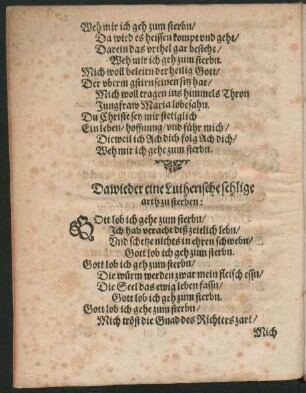 Weh mir ich geh zum sterbn/
Da wird es heissen kompt vnd geht/
Darein das vrthel gar besteht/
Weh mir ich geh zum sterbn.
Mich woll beleitn der heilig Gott/
Der vberm gstirn seinen sitz hat/
Mich woll tragen ins himmels Thron
Jungfraw Maria lobesahn.
Du Christe sey mir stetiglich
Ein leben/ hoffnung/ vnd führ mich/
Die weil ich Ach dich folg Ach dich/
Weh mir ich gehe zum sterbn.
Dawieder eine Lutherische sehlige
arth zu sterben:
GOtt lob ich gehe zum sterbn/
Ich hab veracht diß zeitlich lebn/
Vnd schetze nichts in ehren schwebn/
Gott lob ich geh zum sterbn.
Gott lob ich geh zum sterbn/
Die würm werden zwar mein fleisch essn/
Die Seel das ewig leben fassn/
Gott lob ich geh zum sterbn.
Gott lob ich gehe zum sterbn/
Mich tröst die Gnad des Richters zart/
Mich